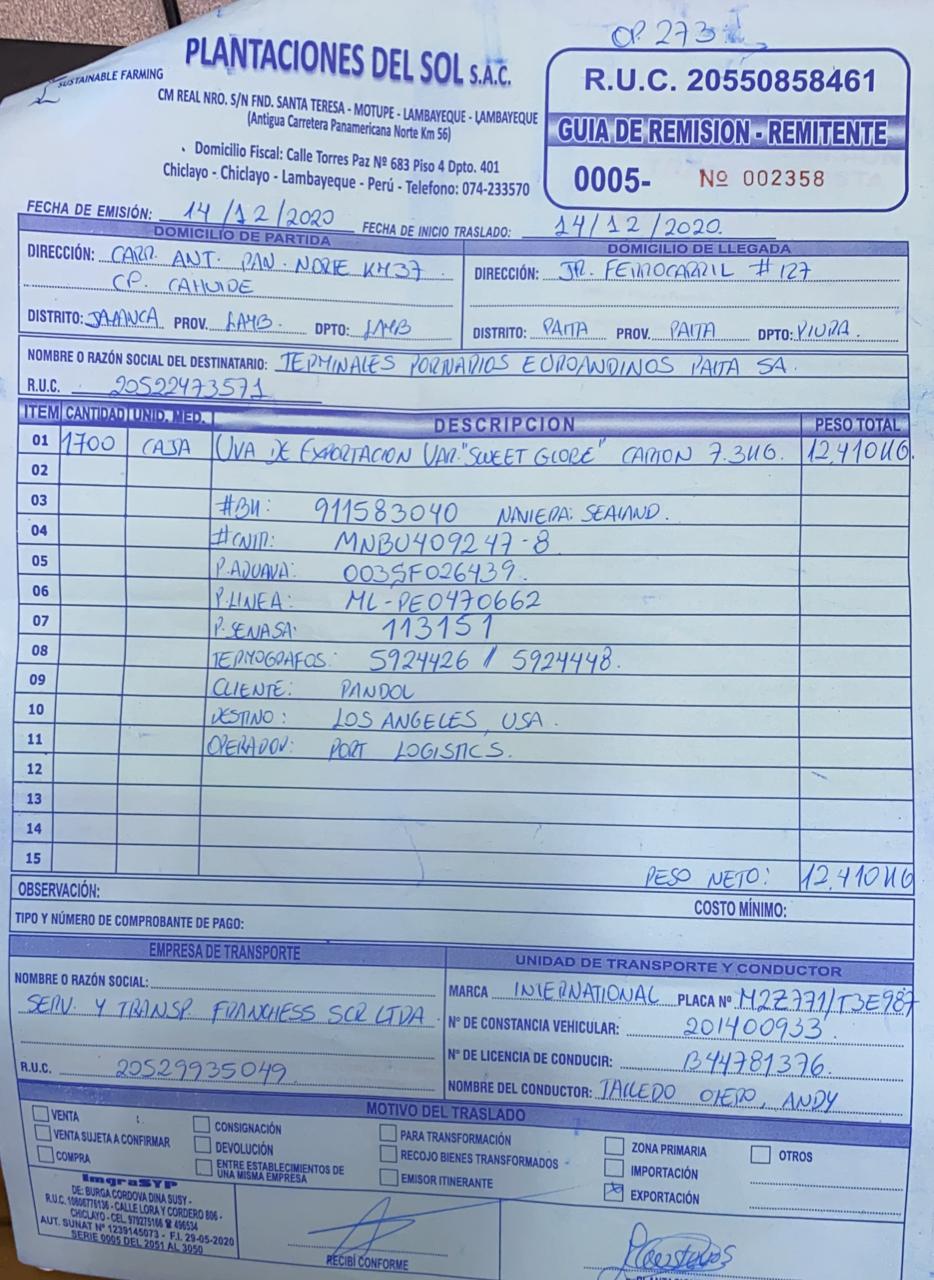 OP. 273
SUSTAINABLE FARMING
PLANTACIONES DEL SOL S.A.C.
CM REAL NRO. S/N FND. SANTA TERESA - MOTUPE - LAMBAYEQUE - LAMBAYEQUE
(Antigua Carretera Panamericana Norte Km 56)
Domicilio Fiscal: Calle Torres Paz Nº 683 Piso 4 Dpto. 401
Chiclayo - Chiclayo - Lambayeque - Perú - Telefono: 074-233570
R.U.C. 20550858461
GUIA DE REMISION - REMITENTE
0005- Nº 002358
FECHA DE EMISIÓN: 14/12/2020 FECHA DE INICIO TRASLADO: 14/12/2020.
DOMICILIO DE PARTIDA
DIRECCIÓN: CARR. ANT. PAN. NORTE KM37
CP. CAHUIDE
DISTRITO: JAYANCA PROV. LAMB. DPTO: LAMB
DOMICILIO DE LLEGADA
DIRECCIÓN: JR. FERROCARRIL # 127
DISTRITO: PAITA PROV. PAITA DPTO: PIURA.
NOMBRE O RAZÓN SOCIAL DEL DESTINATARIO: TERMINALES PORTUARIOS EUROANDINOS PAITA SA.
R.U.C. 20522473571
ITEM CANTIDAD UNID. MED. DESCRIPCION PESO TOTAL
01 1700 CAJA UVA DE EXPORTACION VAR. "SWEET GLOBE" CARTON 7.3KG. 12,410KG.
02
03 #BK: 911583040 NAVIERA: SEALAND.
04 #CNTR: MNBU409247-8
05 P.ADUANA: 003SF026439.
06 P.LINEA: ML-PE0470662
07 P.SENASA: 113151
08 TERMOGRAFOS: 5924426 / 5924448.
09 CLIENTE: PANDOL
10 DESTINO: LOS ANGELES, USA.
11 OPERADOR: PORT LOGISTICS.
12
13
14
15
PESO NETO: 12,410KG
OBSERVACIÓN:
COSTO MÍNIMO:
TIPO Y NÚMERO DE COMPROBANTE DE PAGO:
EMPRESA DE TRANSPORTE
NOMBRE O RAZÓN SOCIAL:
SERV. Y TRANSP. FRANCHESS SCR LTDA
R.U.C. 20529935049
UNIDAD DE TRANSPORTE Y CONDUCTOR
MARCA INTERNATIONAL PLACA Nº M2Z771/T3E987
Nº DE CONSTANCIA VEHICULAR: 201400933.
Nº DE LICENCIA DE CONDUCIR: B44781376.
NOMBRE DEL CONDUCTOR: TALLEDO OTERO, ANDY
MOTIVO DEL TRASLADO
VENTA
VENTA SUJETA A CONFIRMAR
COMPRA
CONSIGNACIÓN
DEVOLUCIÓN
ENTRE ESTABLECIMIENTOS DE
UNA MISMA EMPRESA
PARA TRANSFORMACIÓN
RECOJO BIENES TRANSFORMADOS
EMISOR ITINERANTE
ZONA PRIMARIA
IMPORTACIÓN
EXPORTACIÓN
OTROS
ImgraSYP
DE: BURGA CORDOVA DINA SUSY -
R.U.C. 10806776136 - CALLE LORA Y CORDERO 806 -
CHICLAYO - CEL. 979275166 ☎ 496534
AUT. SUNAT Nº 1239145073 - F.I. 29-05-2020
SERIE 0005 DEL 2051 AL 3050
RECIBÍ CONFORME